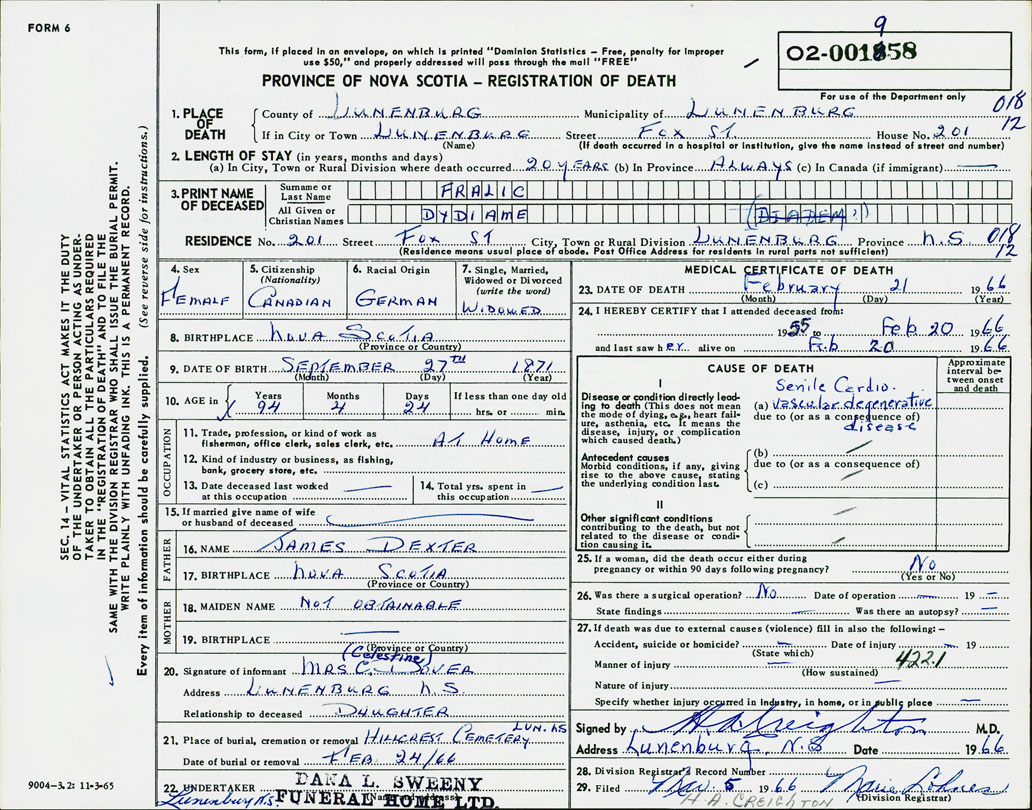 FORM 6
This form, if placed in an envelope, on which is printed "Dominion Statistics — Free, penalty for improper
use $50," and properly addressed will pass through the mail "FREE"
PROVINCE OF NOVA SCOTIA — REGISTRATION OF DEATH
9
02-001858
For use of the Department only
018
12
SEC. 14 — VITAL STATISTICS ACT MAKES IT THE DUTY
OF THE UNDERTAKER OR PERSON ACTING AS UNDER-
TAKER TO OBTAIN ALL THE PARTICULARS REQUIRED
IN THE "REGISTRATION OF DEATH" AND TO FILE THE
SAME WITH THE DIVISION REGISTRAR WHO SHALL ISSUE THE BURIAL PERMIT.
WRITE PLAINLY WITH UNFADING INK. THIS IS A PERMANENT RECORD.
Every item of information should be carefully supplied. (See reverse side for instructions.)
1. PLACE OF DEATH
County of LUNENBURG Municipality of LUNENBURG
If in City or Town LUNENBURG Street FOX ST. House No. 201
(Name) (If death occurred in a hospital or institution, give the name instead of street and number)
2. LENGTH OF STAY (in years, months and days)
(a) In City, Town or Rural Division where death occurred 20 YEARS (b) In Province ALWAYS (c) In Canada (if immigrant) —
3. PRINT NAME OF DECEASED
Surname or Last Name FRALIC
All Given or Christian Names DYDIAME (DIADEM)
RESIDENCE No. 201 Street FOX ST City, Town or Rural Division LUNENBURG Province N.S 018
12
(Residence means usual place of abode. Post Office Address for residents in rural parts not sufficient)
4. Sex
FEMALE
5. Citizenship
(Nationality)
CANADIAN
6. Racial Origin
GERMAN
7. Single, Married,
Widowed or Divorced
(write the word)
WIDOWED
8. BIRTHPLACE NOVA SCOTIA
(Province or Country)
9. DATE OF BIRTH SEPTEMBER 27TH 1871
(Month) (Day) (Year)
10. AGE in Years Months Days If less than one day old
94 4 24 hrs. or min.
OCCUPATION
11. Trade, profession, or kind of work as
fisherman, office clerk, sales clerk, etc. AT HOME
12. Kind of industry or business, as fishing,
bank, grocery store, etc.
13. Date deceased last worked
at this occupation —
14. Total yrs. spent in
this occupation —
15. If married give name of wife
or husband of deceased
FATHER
16. NAME JAMES DEXTER
17. BIRTHPLACE NOVA SCOTIA
(Province or Country)
MOTHER
18. MAIDEN NAME NOT OBTAINABLE
19. BIRTHPLACE —
(Province or Country)
(Celestine)
20. Signature of informant MRS C.
Address LUNENBURG N.S.
Relationship to deceased DAUGHTER
LUN. NS
21. Place of burial, cremation or removal HILLCREST CEMETERY
Date of burial or removal FEB 24/66
22. UNDERTAKER DANA L. SWEENY
(Name and address)
FUNERAL HOME LTD.
Lunenburg N.S.
MEDICAL CERTIFICATE OF DEATH
23. DATE OF DEATH February 21 1966
(Month) (Day) (Year)
24. I HEREBY CERTIFY that I attended deceased from:
1955 to Feb 20 1966
and last saw her alive on Feb 20 1966
CAUSE OF DEATH
Approximate
interval be-
tween onset
and death
I
Disease or condition directly lead-
ing to death (This does not mean
the mode of dying, e.g., heart fail-
ure, asthenia, etc. It means the
disease, injury, or complication
which caused death.)
Senile Cardio.
(a) vascular degenerative
due to (or as a consequence of)
disease
Antecedent causes
Morbid conditions, if any, giving
rise to the above cause, stating
the underlying condition last.
(b)
due to (or as a consequence of)
(c)
II
Other significant conditions
contributing to the death, but not
related to the disease or condi-
tion causing it.
25. If a woman, did the death occur either during
pregnancy or within 90 days following pregnancy? No
(Yes or No)
26. Was there a surgical operation? No Date of operation — 19 —
State findings — Was there an autopsy? —
27. If death was due to external causes (violence) fill in also the following:—
Accident, suicide or homicide? — Date of injury — 19
(State which)
Manner of injury 422.1
(How sustained)
Nature of injury —
Specify whether injury occurred in industry, in home, or in public place —
Signed by H A Creighton M.D.
Address Lunenburg, N.S Date 1966
28. Division Registrar's Record Number
29. Filed Mar. 5 1966 Marie Lohnes
(Division Registrar)
H. A. CREIGHTON
9004-3.2: 11-3-65